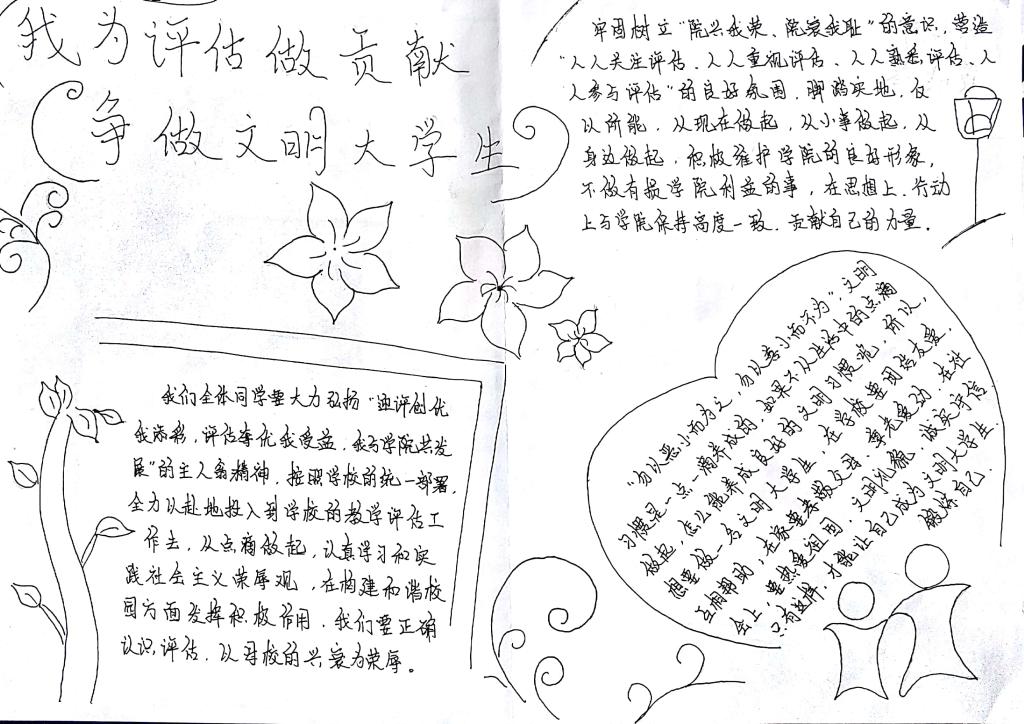 我为评估做贡献
争做文明大学生
牢固树立“院兴我荣、院衰我耻”的意识，营造
“人人关注评估、人人重视评估、人人熟悉评估、人
人参与评估”的良好氛围，脚踏实地，仅
以所能，从现在做起，从小事做起，从
身边做起，积极维护学院的良好形象，
不做有损学院利益的事，在思想上、行动
上与学院保持高度一致，贡献自己的力量。
我们全体同学要大力弘扬“迎评创优
我添彩，评估争优我受益，我与学院共发
展”的主人翁精神，按照学校的统一部署，
全力以赴地投入到学校的教学评估工
作去，从点滴做起，认真学习和实
践社会主义荣辱观，在构建和谐校
园方面发挥积极作用，我们要正确
认识评估，以母校的兴衰为荣辱。
“勿以恶小而为之，勿以善小而不为”，文明
习惯是一点一滴养成的，如果不从生活中的点滴
做起，怎么能养成良好的文明习惯呢，所以，
想要做一名文明大学生，在学校要团结友爱，
互相帮助，在家要孝敬父母，尊老爱幼，在社
会上，要热爱祖国，文明礼貌，诚实守信
只有这样，才能让自己成为文明大学生
锻炼自己．